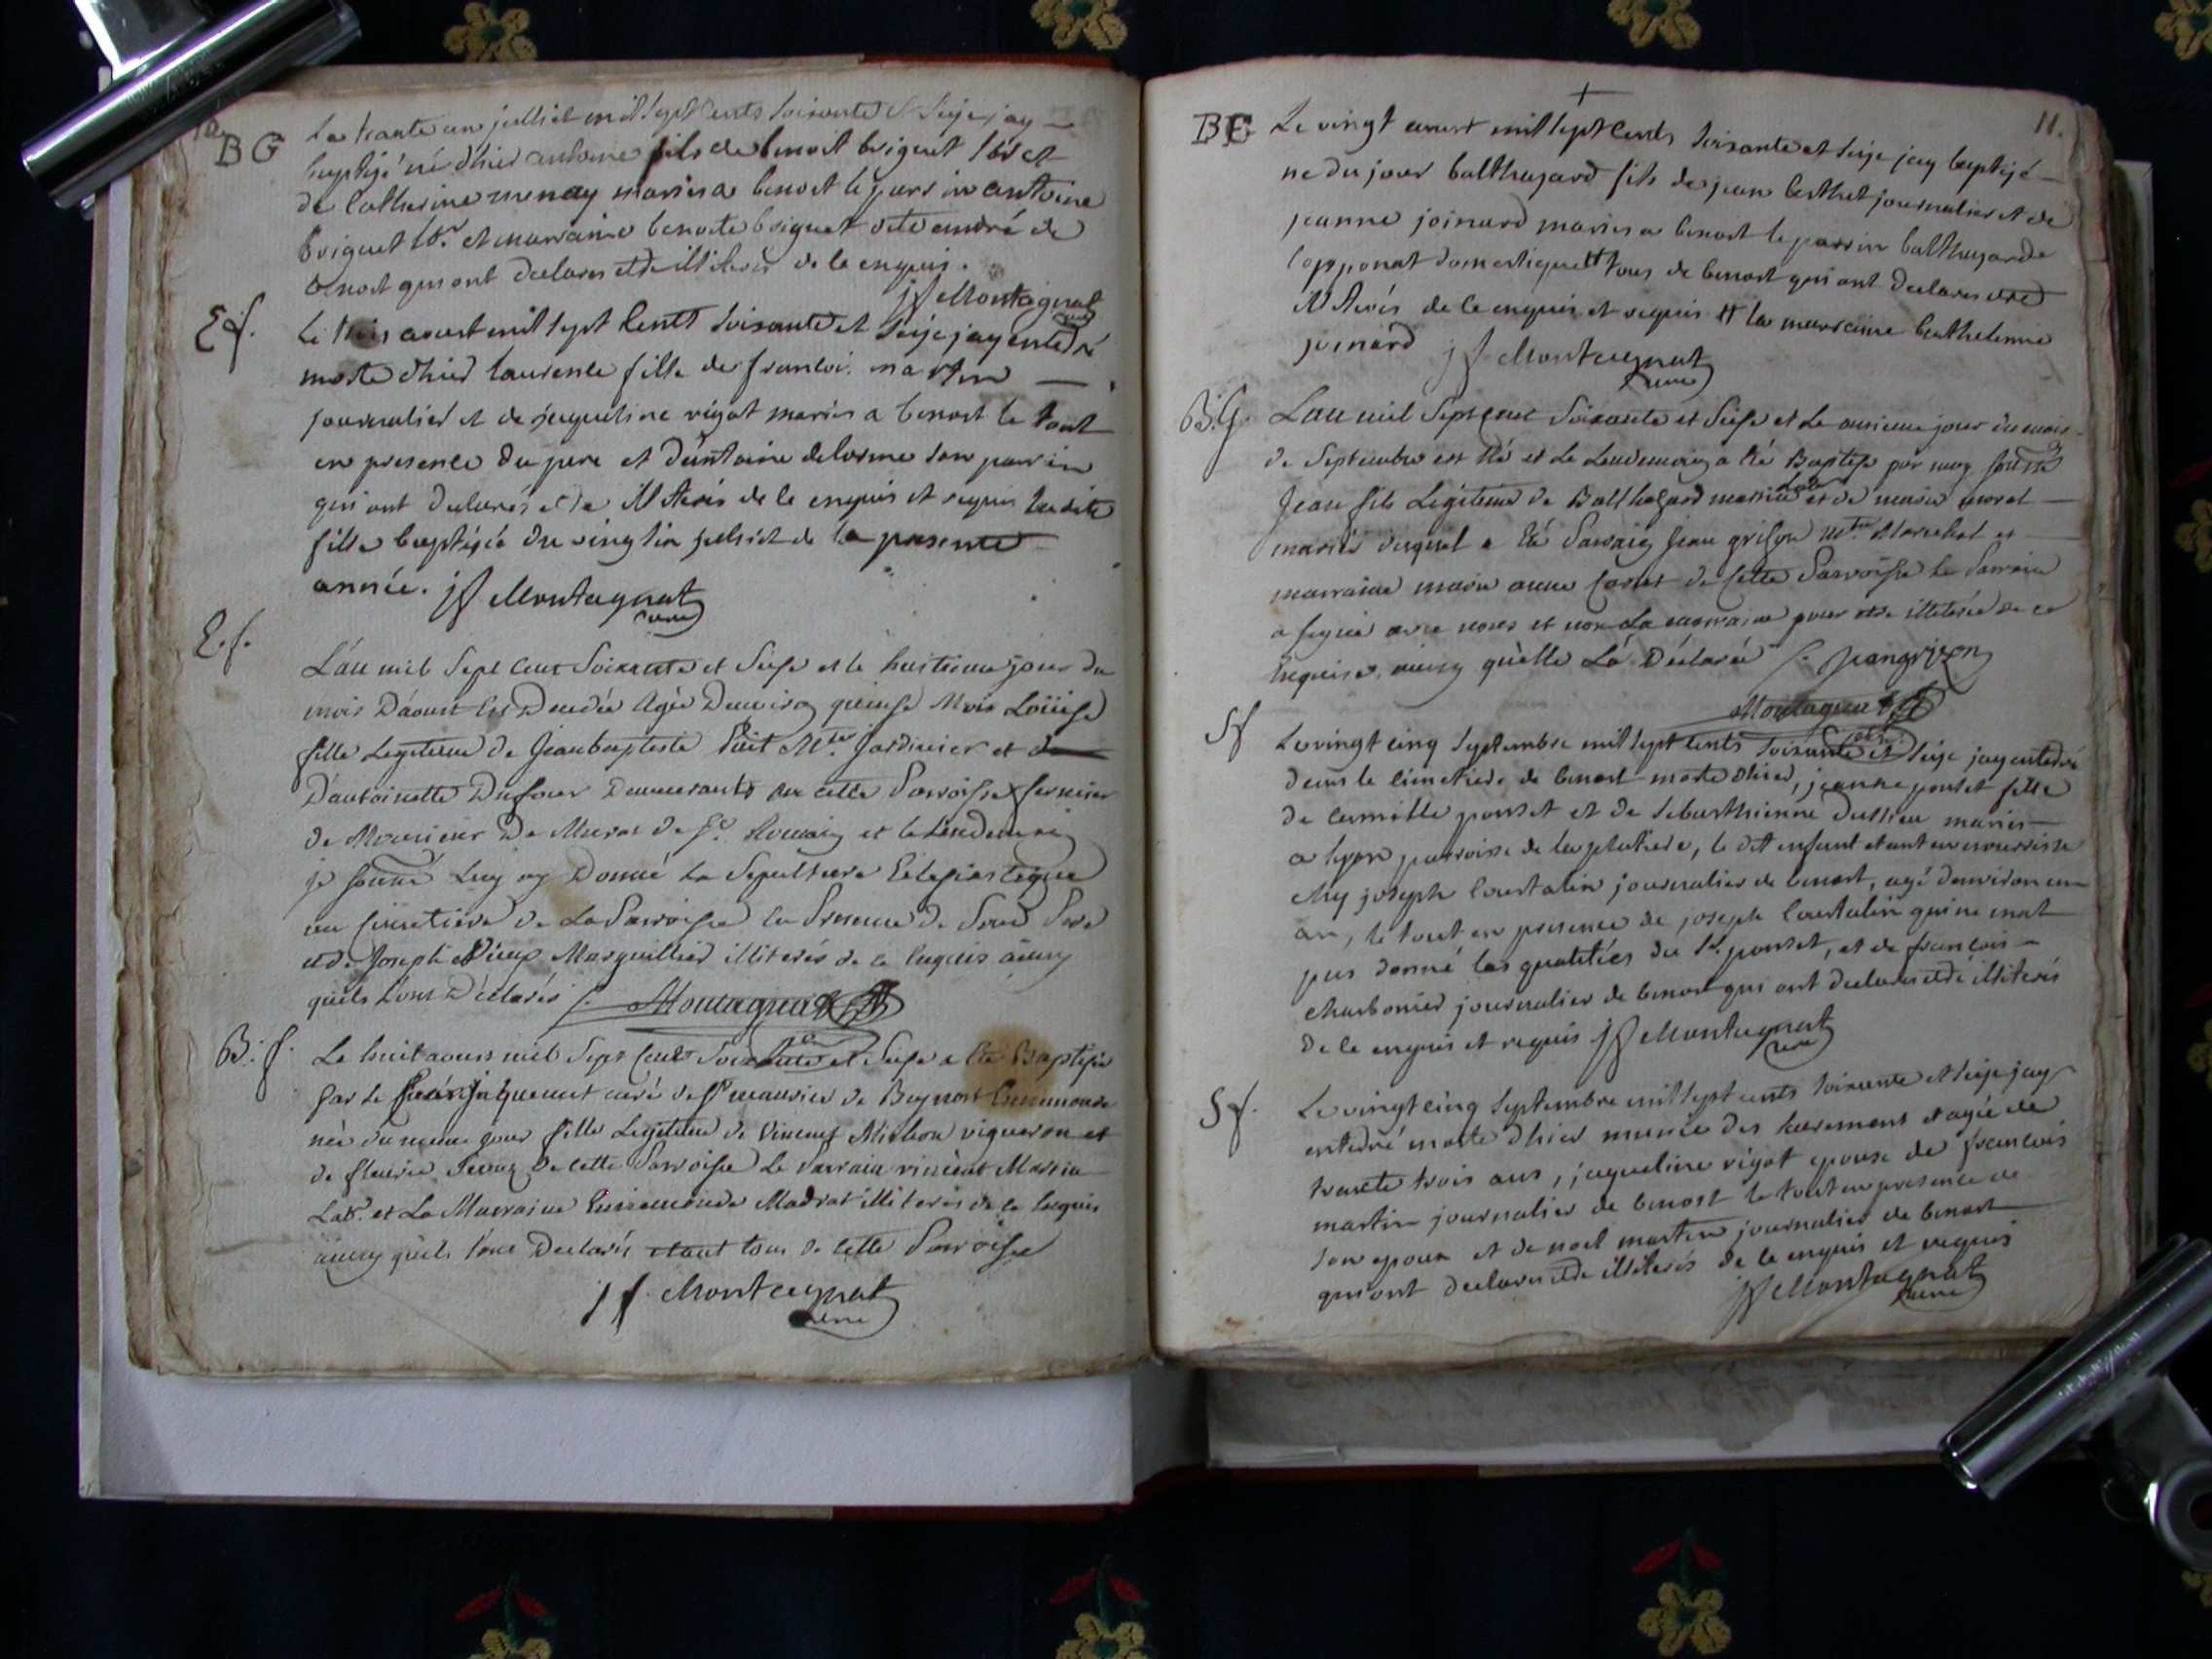 10.
BG
Le trante un julliet mil sept cents soixante et seize jay
baptizé né dhier antoine fils de benoit briguet lbr et
de Catherine menay mariés a benost le parrin antoine
briguet lbr. et marraine benoite briguet dite andré de
benost qui ont declarés etre illiterés de le enquis.
jf Montagnat
curé
Ef.
Le trois aoust mil sept cents soixante et seize jay enterré
morte dhier laurence fille de francois martin
journalier et de jaqueline rigot mariés a benost le tout
en presence du pere et d'antoine delorme son parrin
qui ont declarés etre illiterés de le enquis et requis ladite
fille baptizée du vingt six julliet de la presente
année. jf Montagnat
curé
E.f.
L'an mil sept cent soixante et seise et le huitieme jour du
mois d'aoust est decedée agée denviron quinse mois Loüise
fille legitime de Jean baptiste Mtre. Jardinier et de
d'antoinette Dufour demeurants sur cette Parroisse fermier
de Monsieur De Muras de St. Romain et le lendemain
je soussné luy ay donné la sepulture Eclesiastique
au cimetiere de la Parroisse en presence de Pere
et de Joseph Marguillier illiterés de ce enquis ainsy
quils l'ont déclarés /. Montagnat
curé
B.f.
Le huit aoust mil sept cent soixante et seise a été Baptisée
par le sieur Jaquemet curé de St maurice de Beynost Ennemonde
née du meme jour fille legitime de vincent Michon vigneron et
de fleurie de cette Parroisse le Parrain vincent Martin
Labr. et la Marraine Ennemonde Madrat illiterés de ce enquis
ainsy quils l'ont declarés etant tous de cette Parroisse
jf. Montagnat
curé
11.
BG
Le vingt aoust mil sept cents soixante et seize jay baptizé
né du jour balthazard fils de jean berthet journalier et de
jeanne joinard mariés a benost le parrin balthazarde
domestique tt tous de benost qui ont declarés etre
illiterés de le enquis et requis tt la marraine berthelemie
joinard jf Montagnat
curé
B.G.
L'an mil sept cent soixante et seise et le onsieme jour du mois
de Septembre est né et le lendemain a été Baptisé par moy soussné
Jean fils Legitime de Balthasard et de marie moret
mariés duquel a été Parrain Jean grison Mtre. Marechal et
marraine marie anne de cette Parroisse le Parrain
a signé avec nous et non la marraine pour etre illiterée de ce
Enquise ainsy quelle l'a déclarée /. Jean grizon
Montagnat
curé
Sf
Le vingt cinq septembre mil sept cents soixante et seize jay enterré
dans le cimetiere de benost morte dhier, jeanne ponset fille
de camille ponset et de sebasthienne mariés
a lyon parroisse de la platiere, le dit enfant etant en nourrisse
chez joseph Coustalin journalier de benost, agé denviron un
an, le tout en presence de joseph Coustalin qui ne mat
pas donné les qualitées du Sr. ponset, et de francois
charbonier journalier de benost qui ont declarés etre illiterés
de le enquis et requis jf Montagnat
curé
Sf.
Le vingt cinq septembre mil sept cents soixante et seize jay
enterré morte dhier munie des sacremens et agée de
trante trois ans, jaqueline rigot epouse de francois
martin journalier de benost le tout en presence de
son epoux et de noel martin journalier de benost
qui ont declarés etre illiterés de le enquis et requis
jf Montagnat
curé